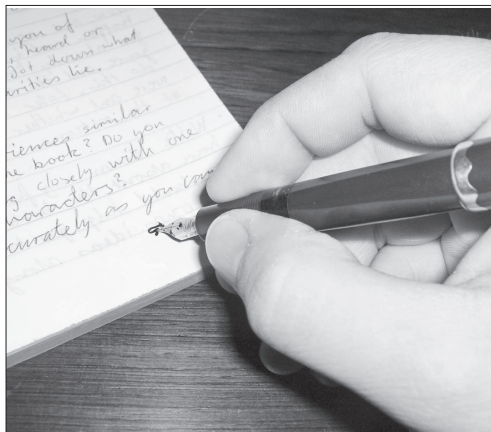 you of
heard or
Jot down what
rities lie.
riences similar
e book? Do you
g closely with one
haracters?
curately as you can